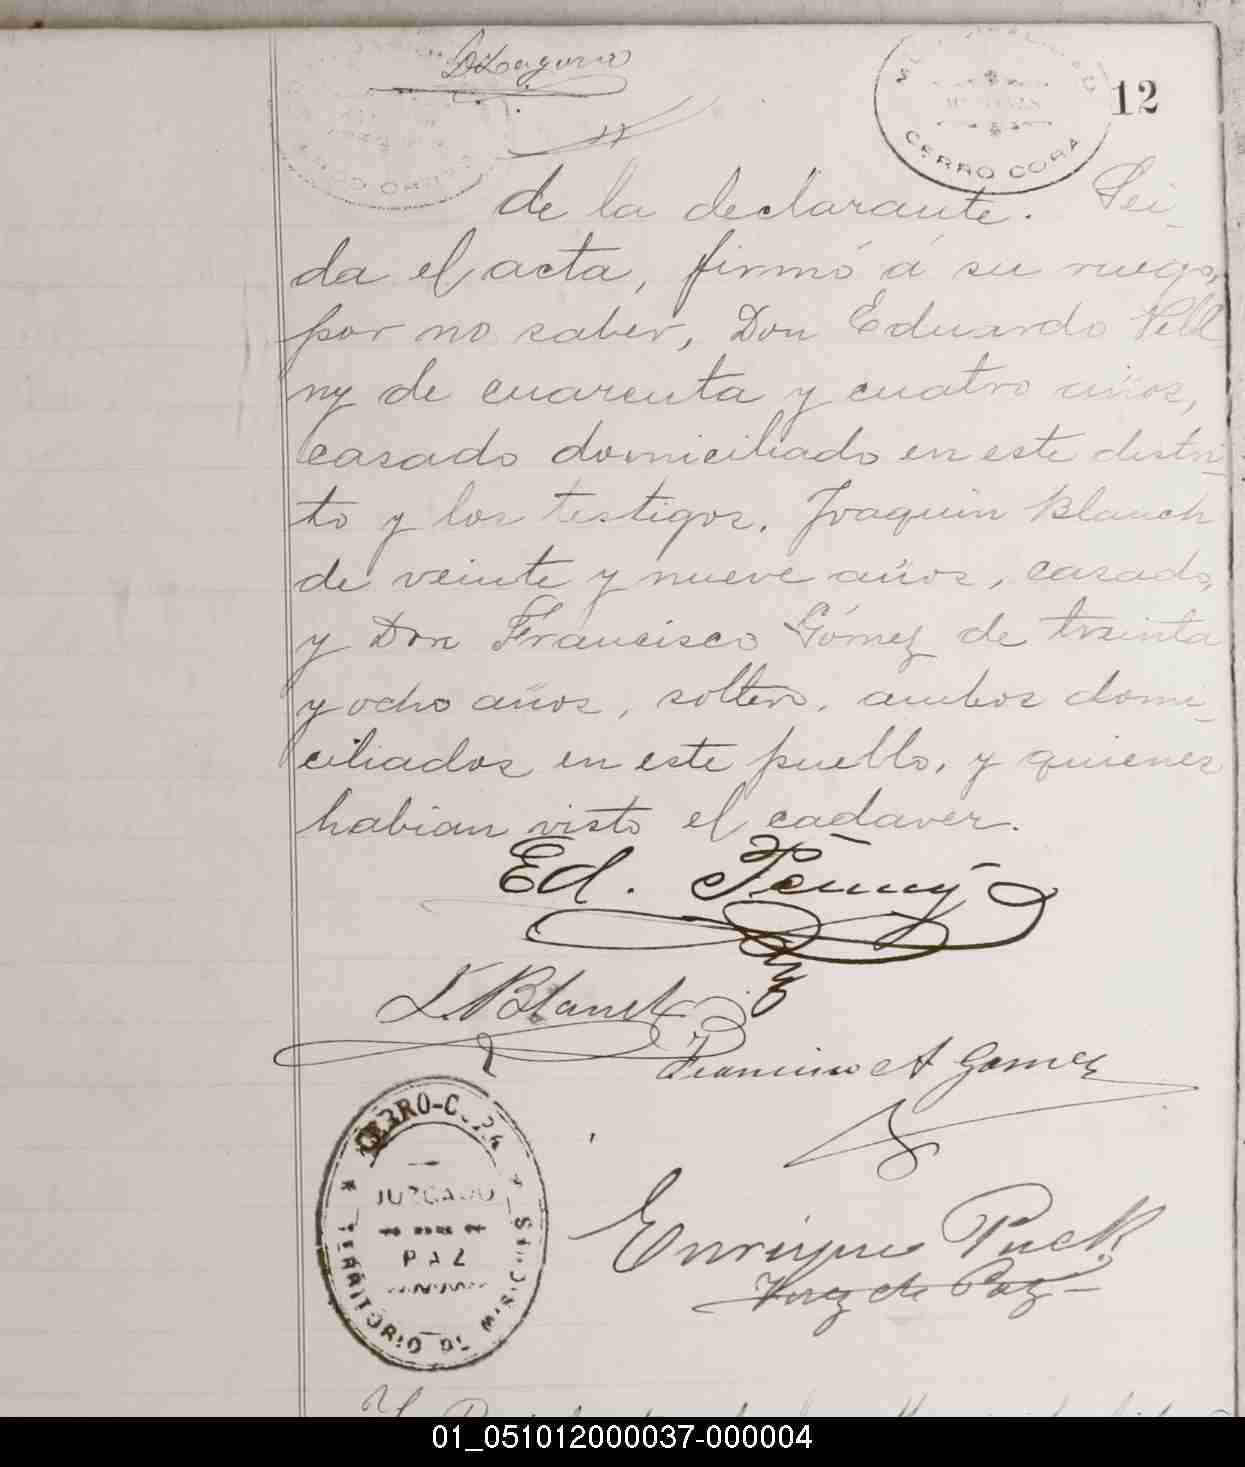 12
CERRO CORA
de la declarante. Lei-
da el acta, firmó á su ruego,
por no saber, Don Eduardo
ny de cuarenta y cuatro años,
casado domiciliado en este distri-
to y los testigos. Joaquin Blanch
de veinte y nueve años, casado,
y Don Francisco Gómez de treinta
y ocho años, soltero, ambos domi-
ciliados en este pueblo, y quienes
habian visto el cadaver.
Ed.
Blanch
Francisco A Gomez
CERRO-CORA
JUZGADO
DE
PAZ
TERRITORIO DE MISIONES
Enrique Puck
Juez de Paz
01_051012000037-000004